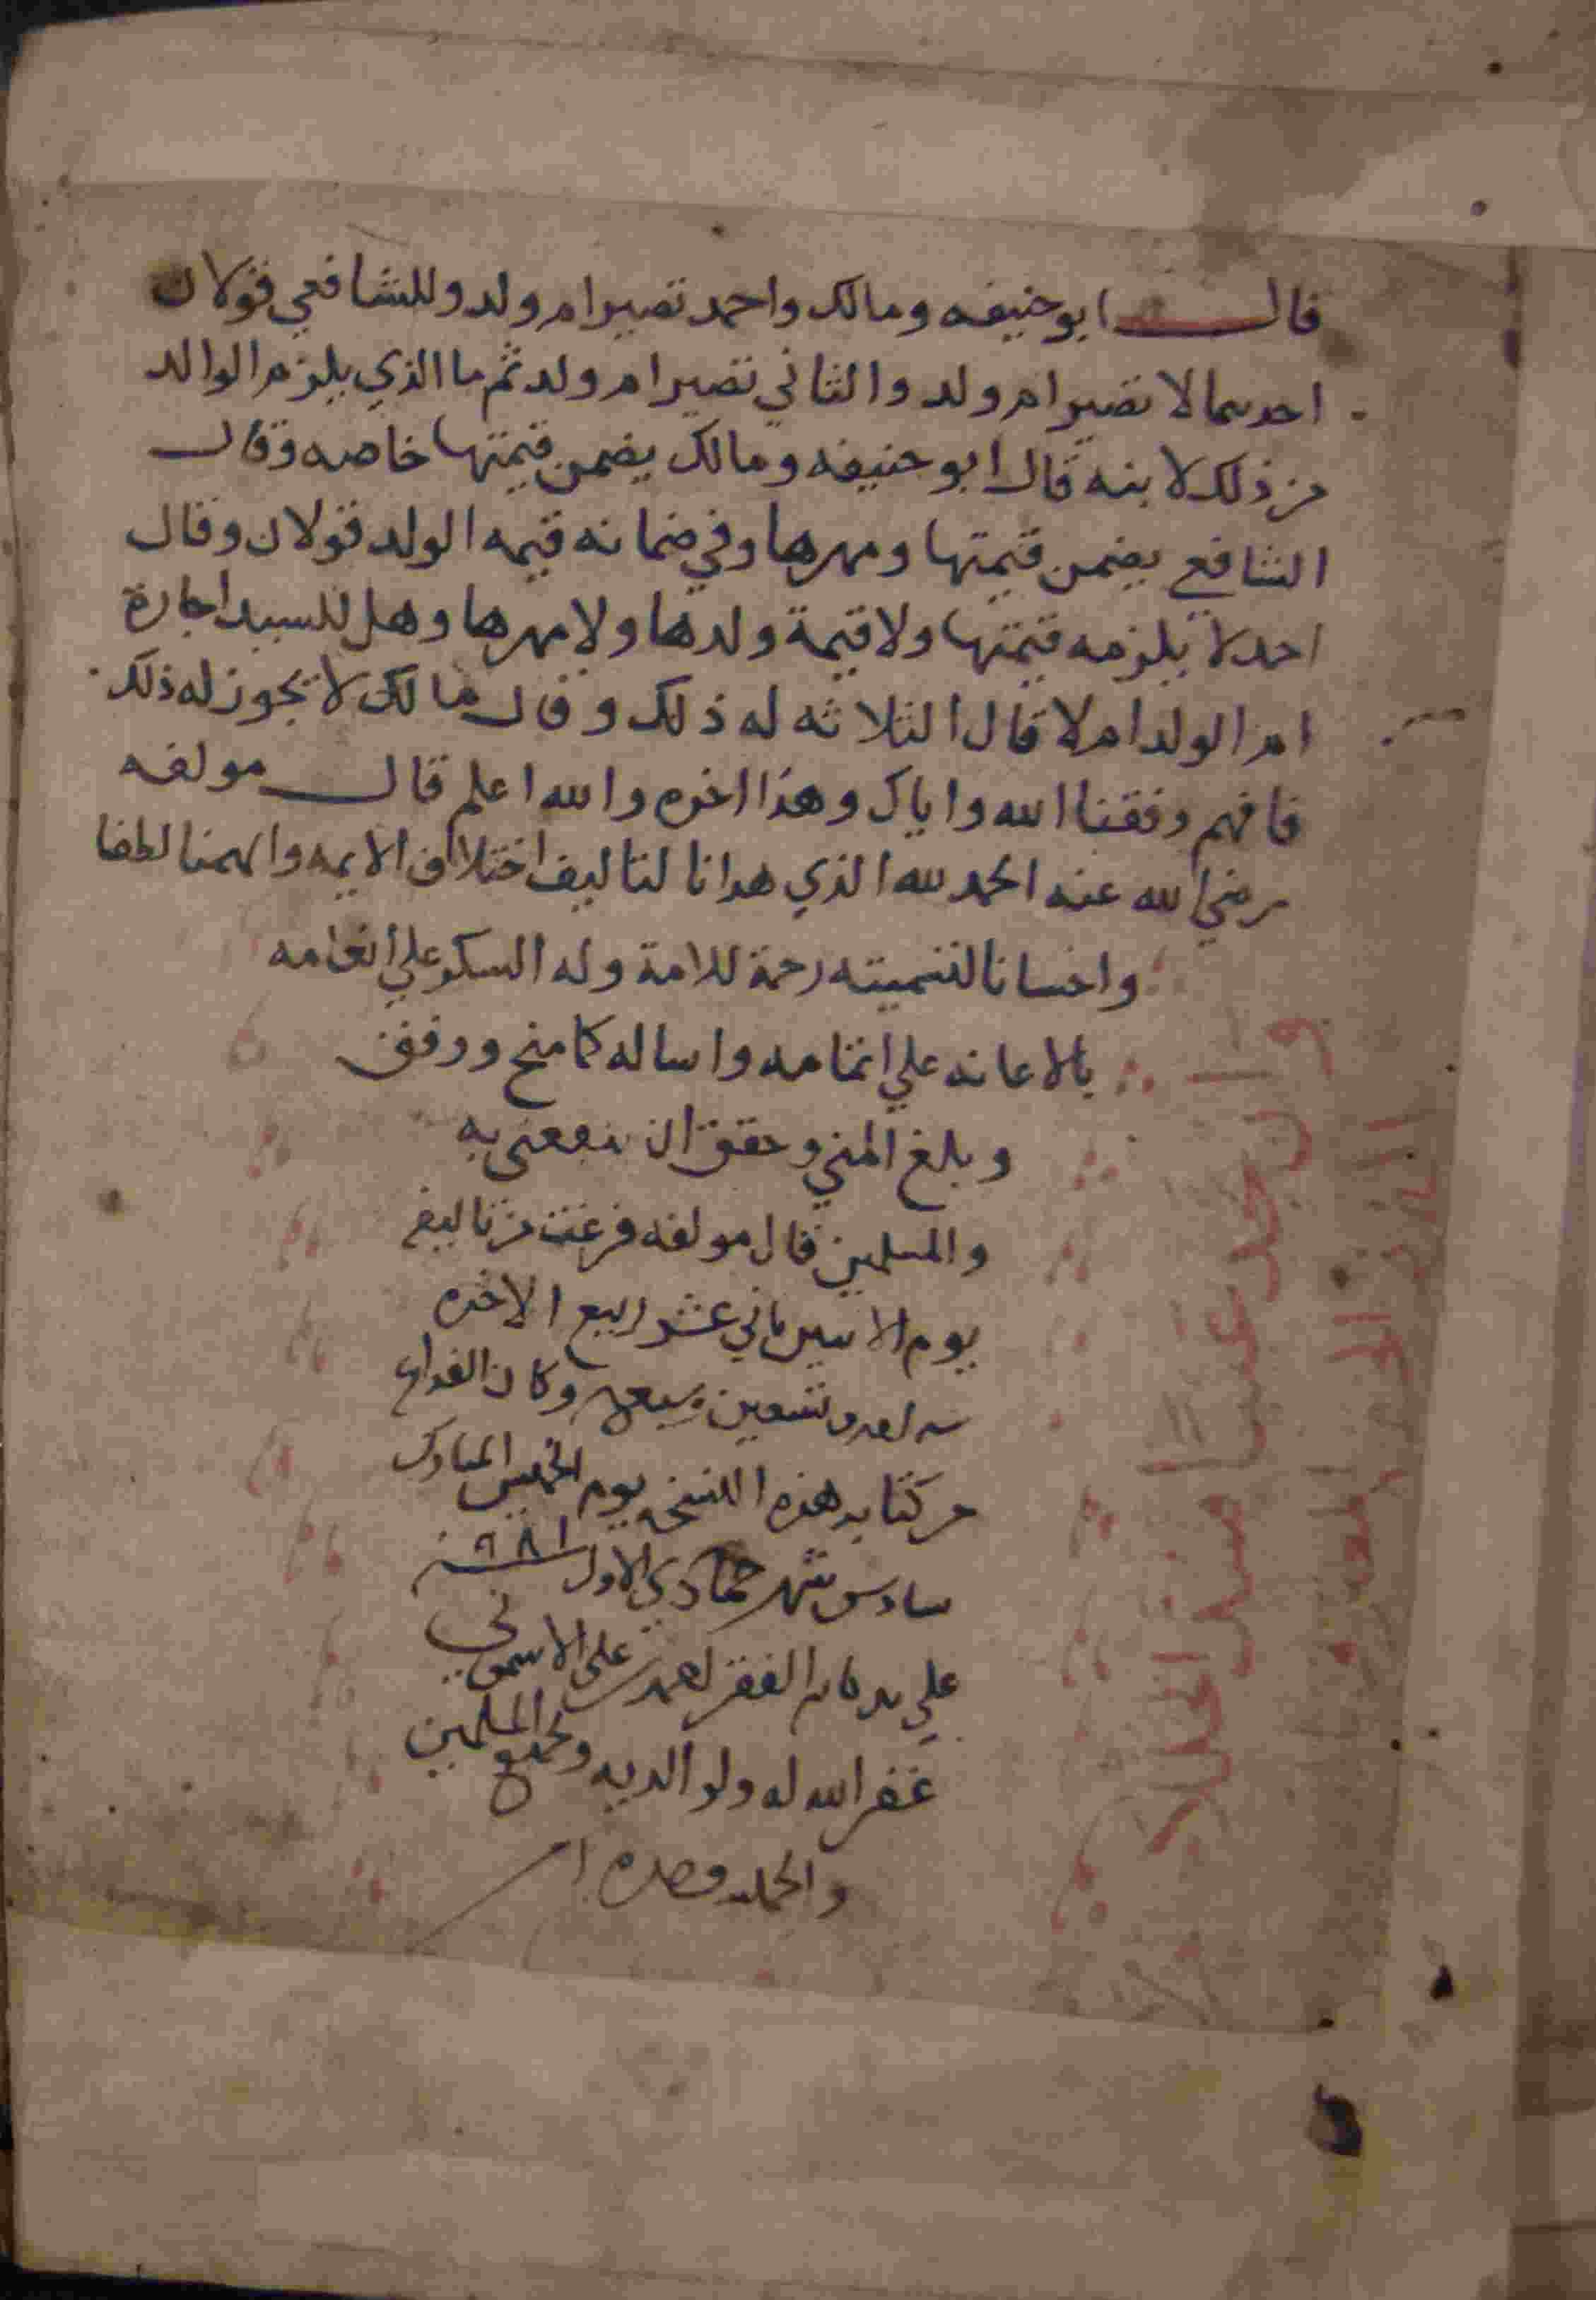 قالــــ ابو حنيفه ومالك واحمد تصير ام ولد وللشافعي قولان
احدهما لا تصير ام ولد والثاني تصير ام ولد ثم ما الذي يلزم الوالد
من ذلك لابنه قال ابو حنيفه ومالك يضمن قيمتها خاصه وقال
الشافعي يضمن قيمتها ومهرها وفي ضمانه قيمه الولد قولان وقال
احمد لا يلزمه قيمتها ولا قيمة ولدها ولا مهرها وهل للسيد اجارة
ام الولد ام لا قال الثلاثه له ذلك وقال مالك لا يجوز له ذلك
فافهم وفقنا الله واياك وهذا اخره والله اعلم قالــــ مولفه
رضي الله عنه الحمد لله الذي هدانا لتاليف اختلاف الايمه والهمنا لطفا
واحسانا لتسميته رحمة للامة وله الشكر علي انعامه
بالاعانه علي اتمامه واساله كما منح ووفق
وبلغ المني وحقق ان ينفعني به
والمسلمين قال مولفه فرغت من تاليفه
يوم الاثنين ثاني عشر ربيع الاخره
سنه وتسعين وكان الفراغ
من كتابه هذه النسخه يوم الخميس المبارك
سادس شهر جمادي الاول سنة ٩٨١
علي يد كاتبه الفقير علي الاشموني
غفر الله له ولوالديه ولجميع المسلمين
والحمد لله وحده
وان تجد عيبا فسد الخللا